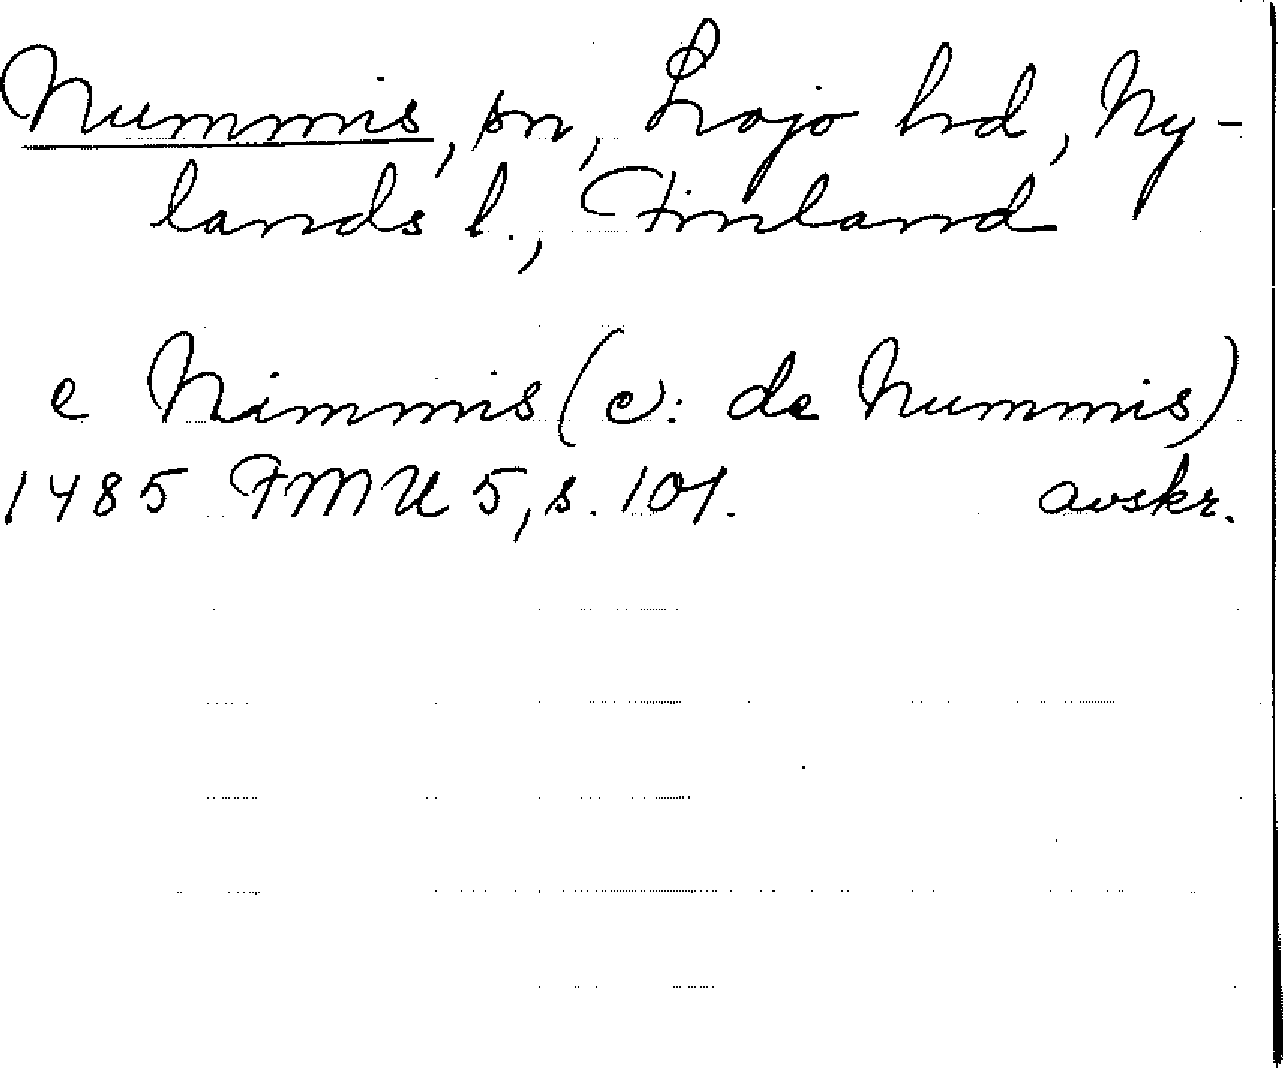 Nummis, sn, Lojo hd, Ny-
lands l., Finland
e Nimmis (ɔ: de Nummis)
1485 FMU 5, s. 101. avskr.